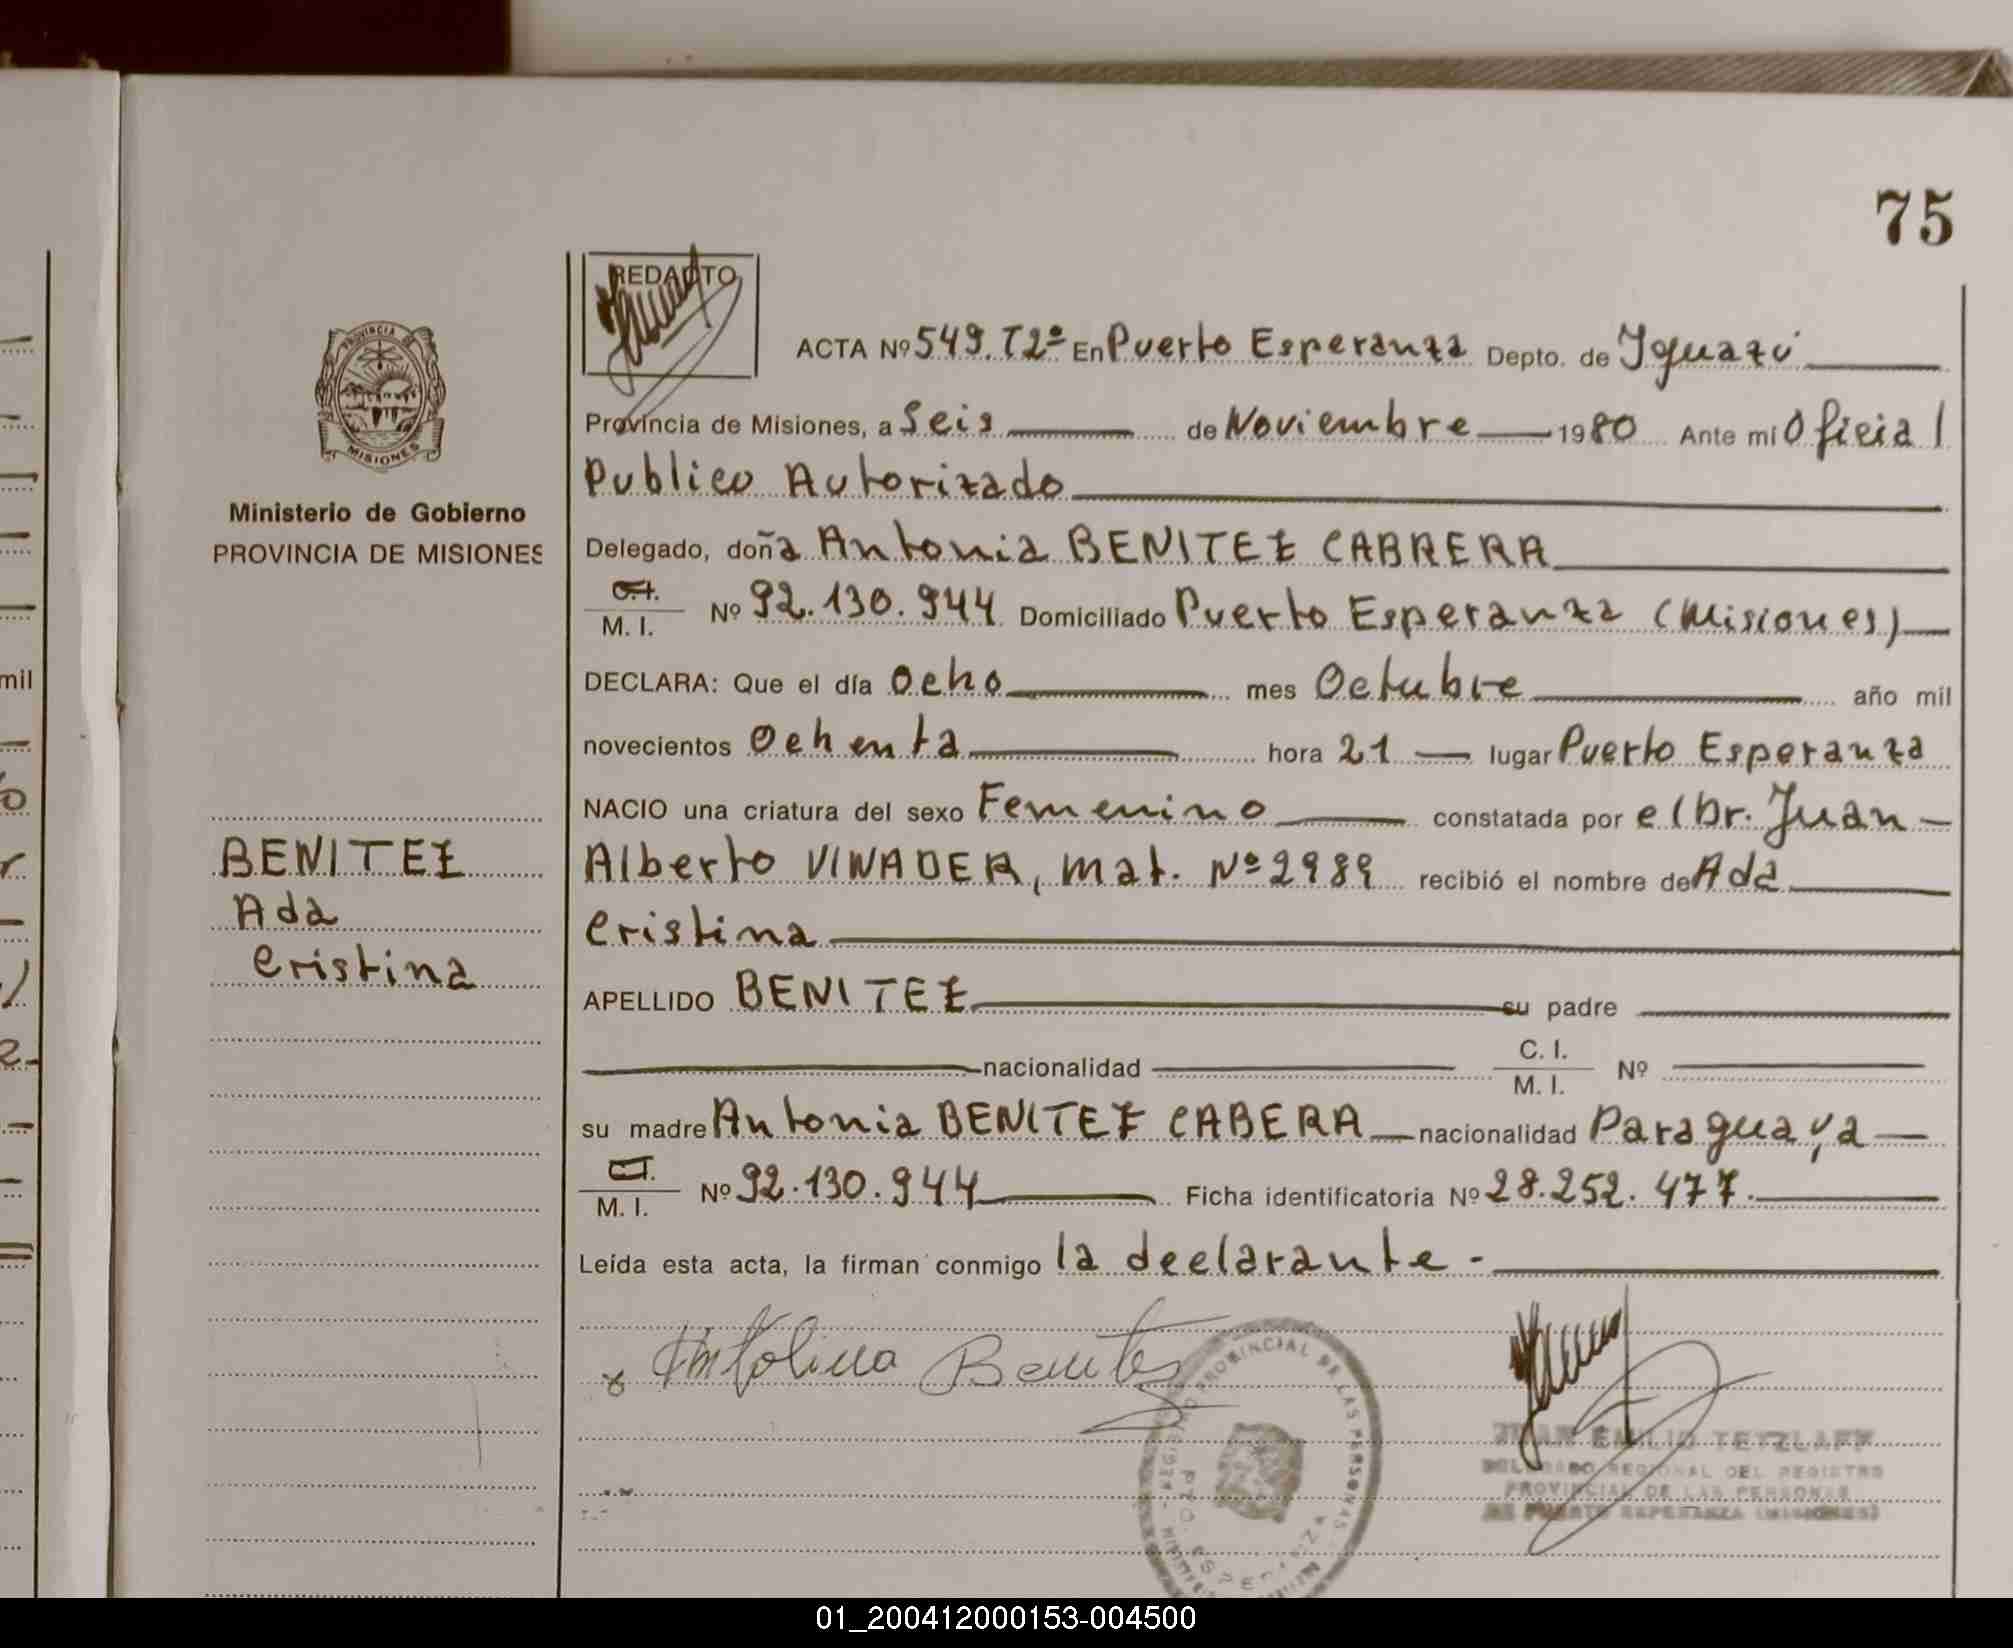 75
REDACTO
ACTA Nº 549. T2º En Puerto Esperanza Depto. de Iguazú
Provincia de Misiones, a Seis de Noviembre 1980 Ante mi Oficial
Publico Autorizado
Ministerio de Gobierno
PROVINCIA DE MISIONES
Delegado, doña Antonia BENITEZ CABRERA
C.I. M. I. Nº 92.130.944 Domiciliado Puerto Esperanza (Misiones)
DECLARA: Que el día Ocho mes Octubre año mil
novecientos Ochenta hora 21 lugar Puerto Esperanza
NACIO una criatura del sexo Femenino constatada por el Dr. Juan
Alberto VINADER, Mat. Nº 2989 recibió el nombre de Ada
Cristina
BENITEZ
Ada
Cristina
APELLIDO BENITEZ su padre
nacionalidad C. I. M. I. Nº
su madre Antonia BENITEZ CABERA nacionalidad Paraguaya
C.I. M. I. Nº 92.130.944 Ficha identificatoria Nº 28.252.477.
Leída esta acta, la firman conmigo la declarante.-
Benitez
PROVINCIAL DE LAS PERSONAS
PTO. ESPERANZA
JUAN EMILIO TETZLAFF
DELEGADO REGIONAL DEL REGISTRO
PROVINCIAL DE LAS PERSONAS
DE PUERTO ESPERANZA (MISIONES)
mil
01_200412000153-004500